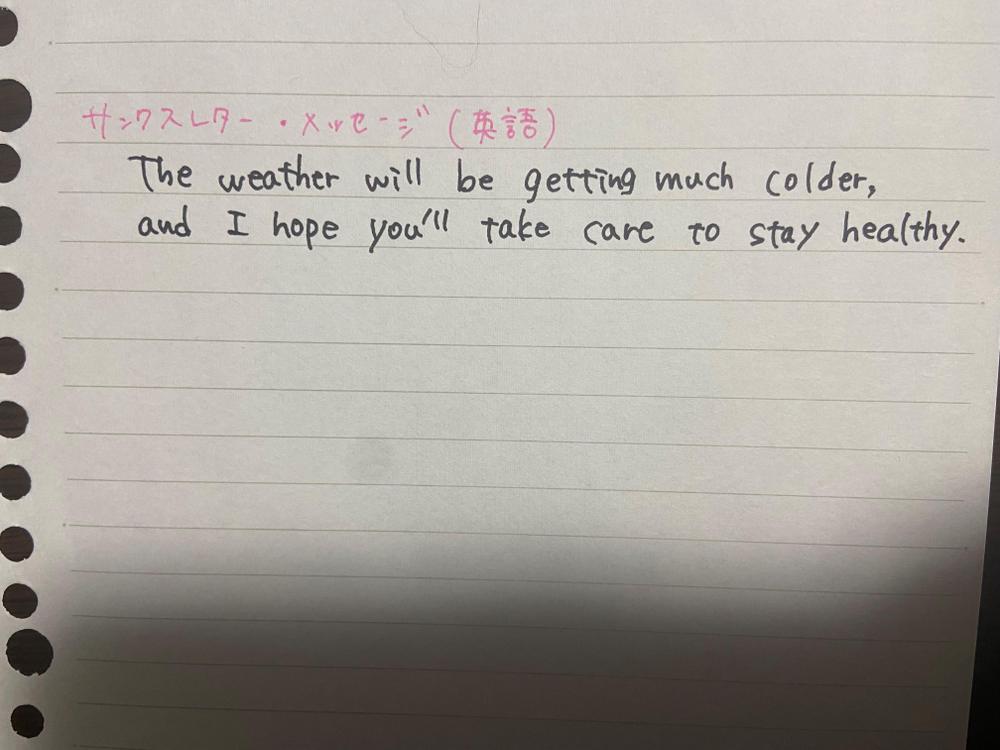 サンクスレター・メッセージ(英語)
The weather will be getting much colder,
and I hope you'll take care to stay healthy.